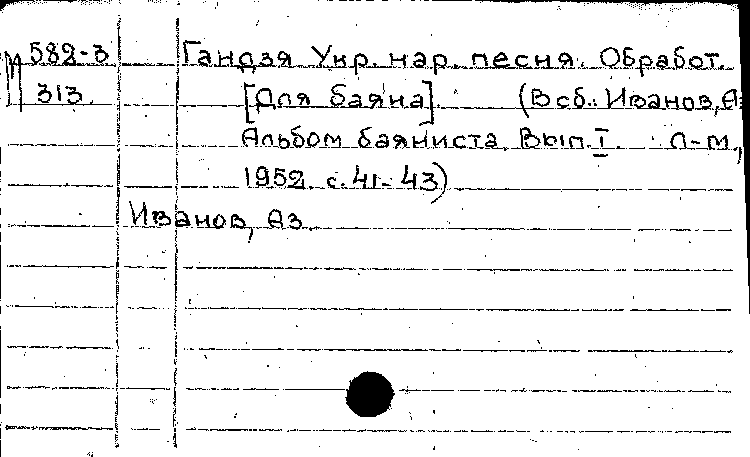 М 582-3 Гандзя Укр. нар. песня. Обработ.
313. [Для баяна]. (В сб.: Иванов, А.
Альбом баяниста. Вып. I. Л-М.,
1952. с. 41-43)
Иванов, Аз.